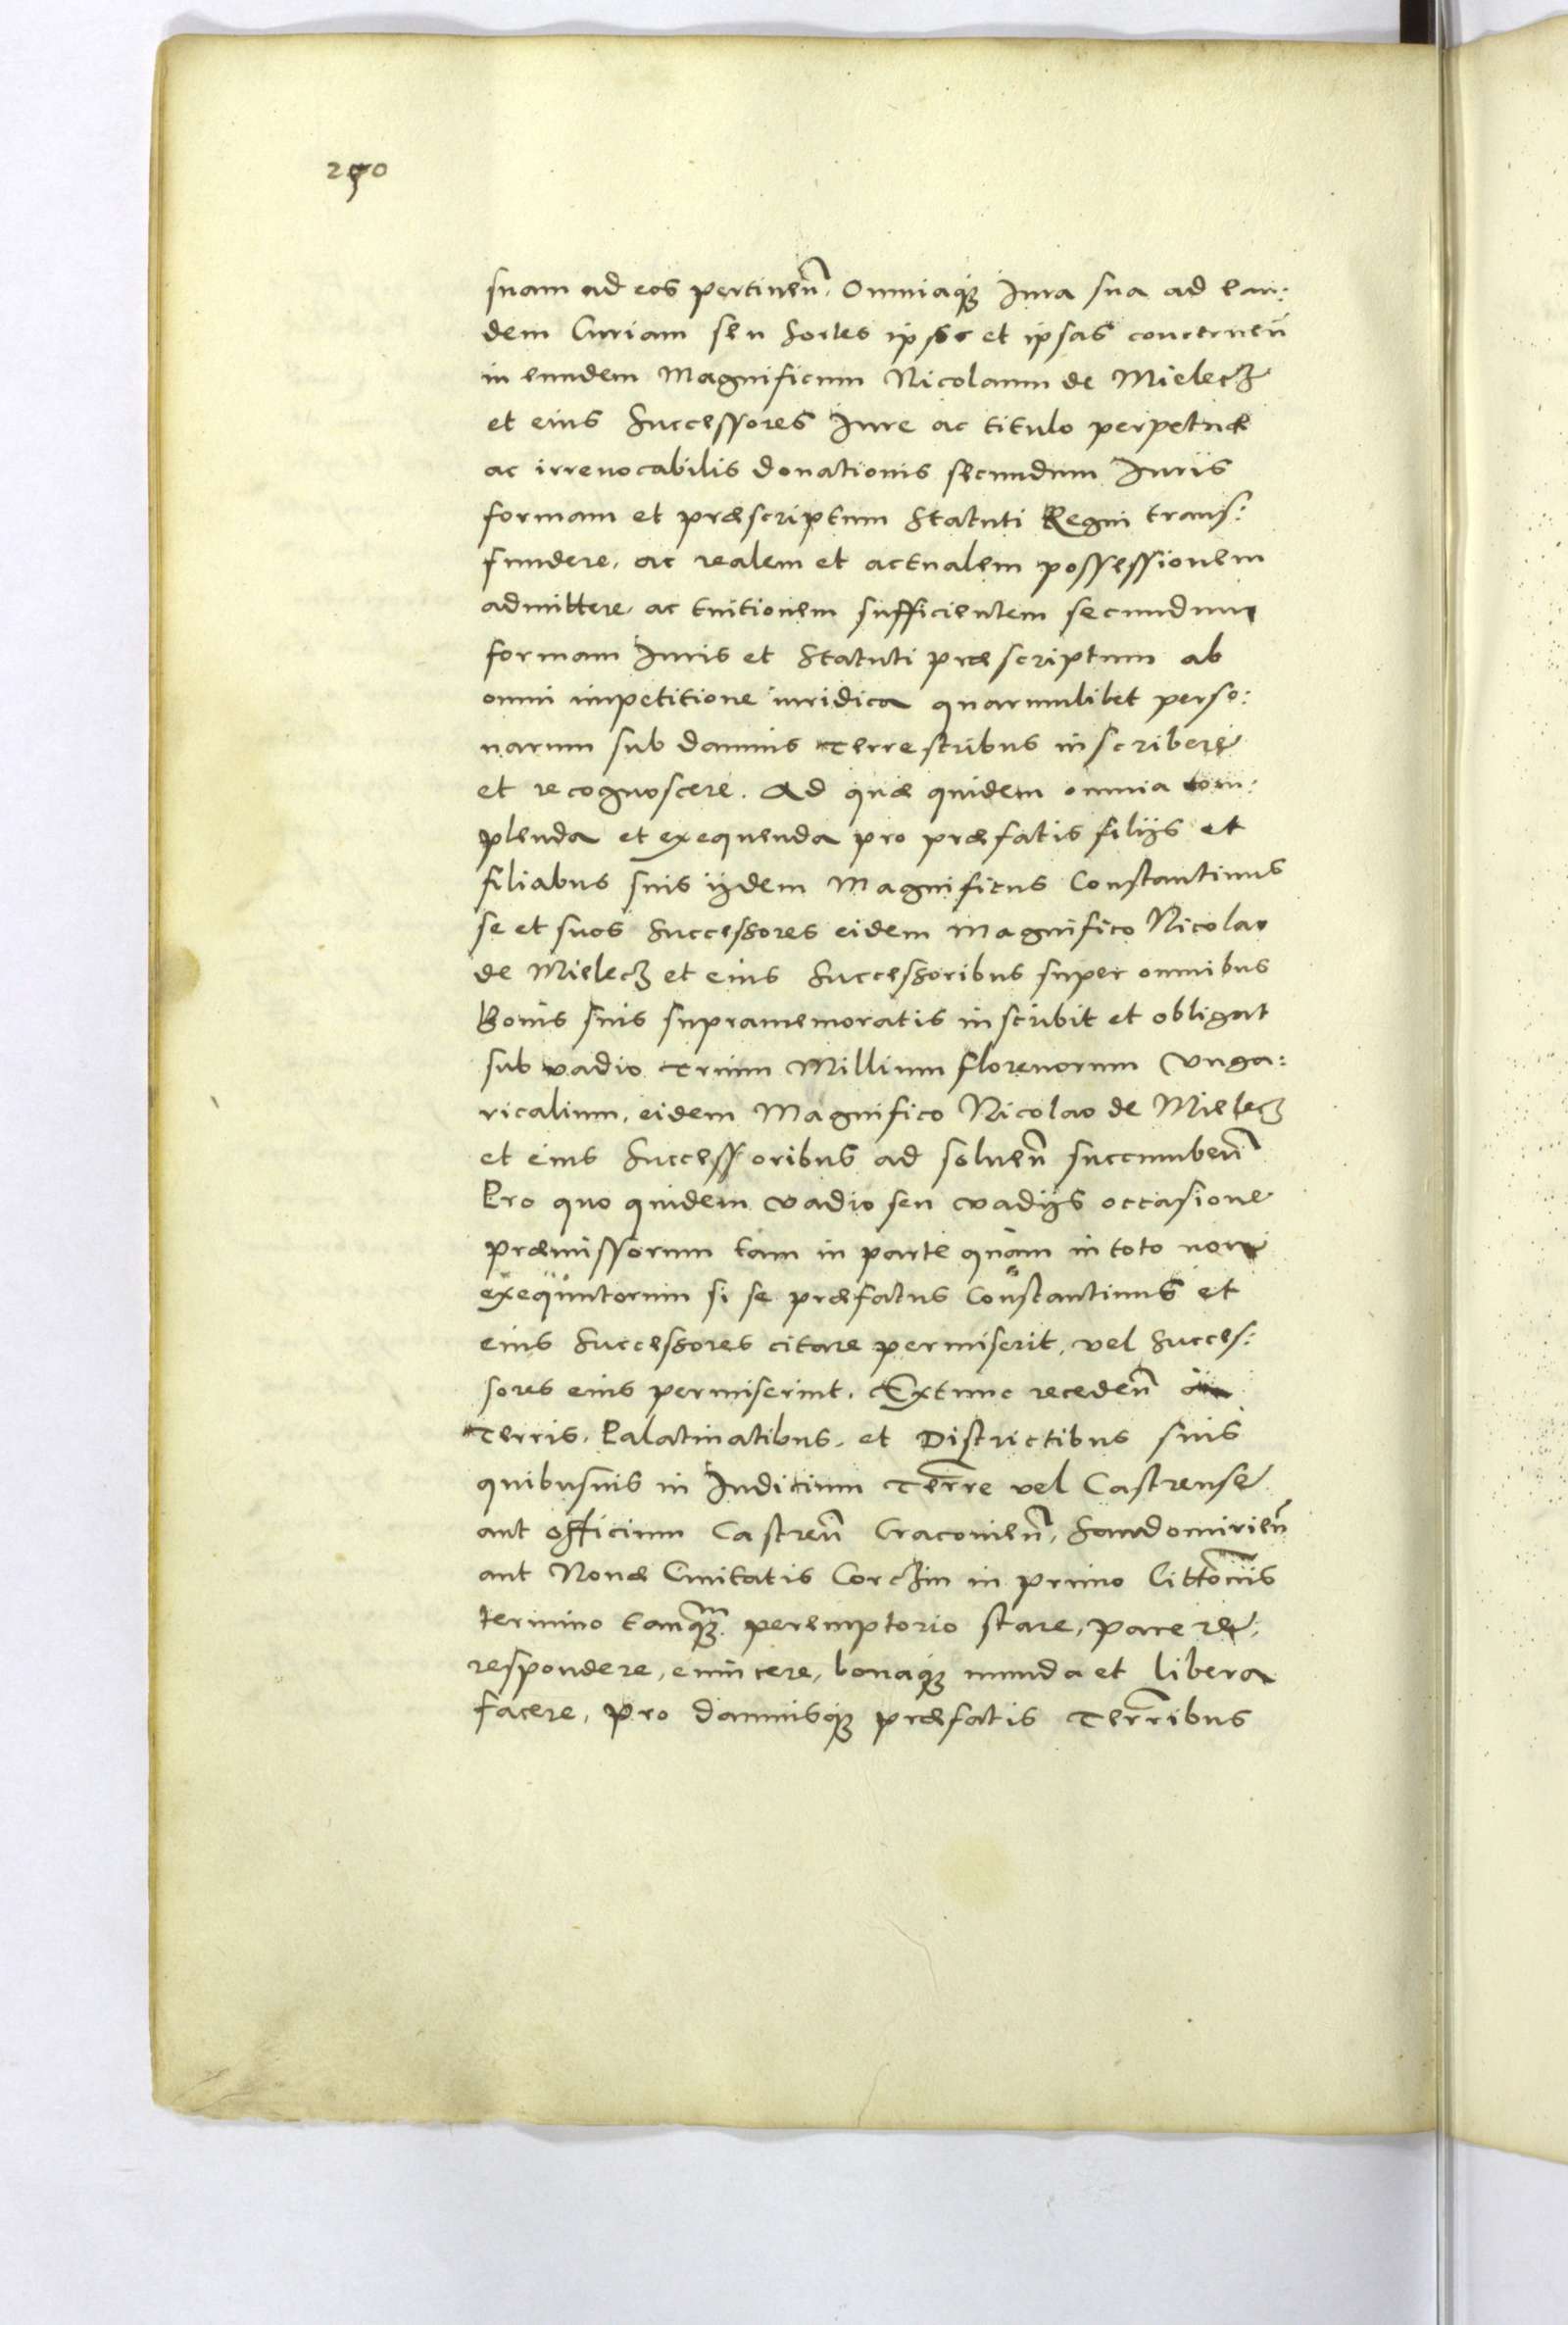 290
suam ad eos pertineñ. Omniaqꝫ Iura sua ad ean:
dem Curiam seu Sortes ipsos et ipsas concerneñ
in eundem Magnificum Nicolaum de Mielecz
et eius Successores Iure ac titulo perpetuæ
ac irreuocabilis donationis secundum Iuris
formam et præscriptum Statuti Regni trans:
fundere, ac realem et actualem possessionem
admittere, ac tuitionem sufficientem secundum
formam Iuris et Statuti præscriptum ab
omni impetitione iuridica quarumlibet perso:
narum sub damnis terrestribus inscribere
et recognoscere. Ad quæ quidem omnia com:
plenda et exequenda pro præfatis filijs et
filiabus suis ijdem Magnificus Constantinus
se et suos Successores eidem Magnifico Nicolao
de Mielecz et eius Successoribus super omnibus
Bonis suis supramemoratis inscribit et obligat
sub vadio Trium Millium florenorum Vnga:
ricalium, eidem Magnifico Nicolao de Mielecz
et eius Successoribus ad solueñ succumbeñ
Pro quo quidem vadio seu vadijs occasione
præmissorum tam in parte quàm in toto non
exequutorum si se præfatus Constantinus et
eius Successores citare permiserit, vel Succes:
sores eius permiserint. Extunc recedeñ
Terris, Palatinatibus, et Districtibus suis
quibusuis in Iudicium Terre vel Castrense
aut officium Castreñ Cracouieñ, Sandomirieñ
aut Nouæ Ciuitatis Corczin in primo Citto͞nis
termino tanqꝫ peremptorio stare, parere,
respondere, euincere, bonaqꝫ munda et libera
facere, pro damnisqꝫ præfatis Terr̄ibus